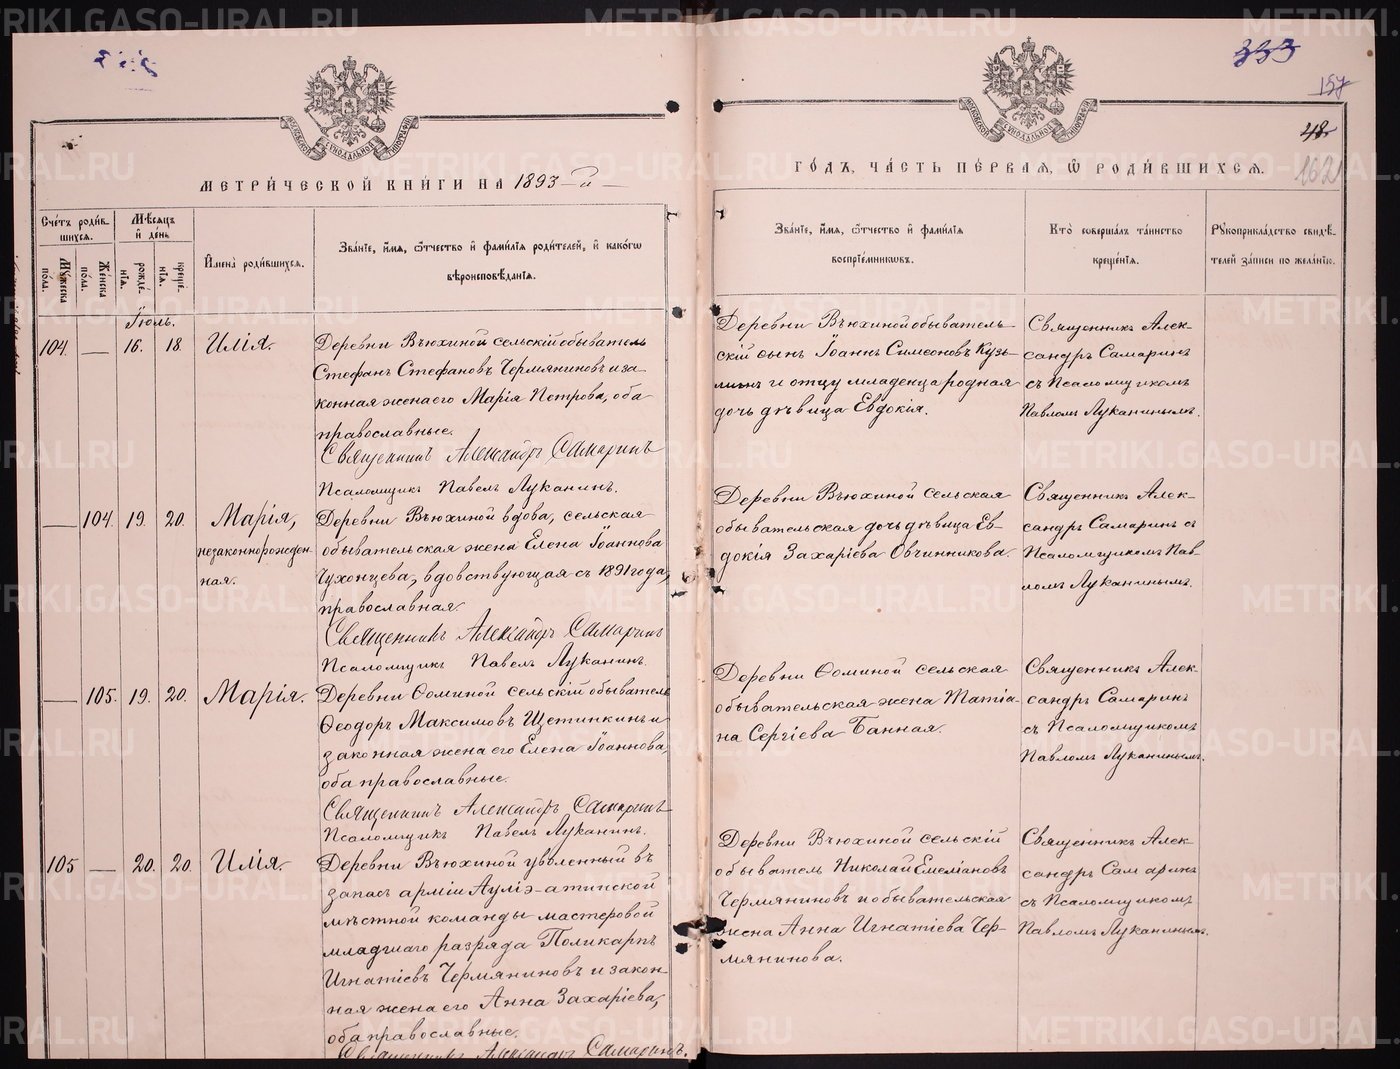 333
157
48
1621
МЕТРИ́ЧЕСКОЙ КНИ́ГИ НА 1893-й
ГО́ДЪ, ЧА́СТЬ ПЕ́РВАЯ, Ѡ РОДИ́ВШИХСЯ.
Сче́тъ роди́вшихся.
Му́жеска по́ла.
Же́нска по́ла.
Мѣ́сяцъ и҆ де́нь
рожде́нїя.
креще́нїя.
И҆мена̀ роди́вшихся.
Зва́нїе, и҆́мя, ѻ҆́тчество и҆ фами́лїя роди́телей, и҆ како́гѡ вѣроисповѣ́данїя.
Зва́нїе, и҆́мя, ѻ҆́тчество и҆ фами́лїя воспрїе́мниковъ.
Кто̀ соверша́лъ та́инство креще́нїя.
Рꙋкоприкла́дство свидѣ́телей за́писи по жела́нїю.
Іюль.
104. — 16. 18. Илія.
Деревни Вьюхиной сельскій обыватель
Стефанъ Стефановъ Чермяниновъ и за-
конная жена его Марія Петрова, оба
православные.
Священникъ Александръ Самаринъ
Псаломщикъ Павелъ Луканинъ.
Деревни Вьюхиной обыватель-
скій сынъ Іоаннъ Симеоновъ Кузь-
минъ и отцу младенца родная
дочь дѣвица Евдокія.
Священникъ Алек-
сандръ Самаринъ
съ Псаломщикомъ
Павломъ Луканинымъ.
— 104. 19. 20. Марія,
незаконнорожден-
ная.
Деревни Вьюхиной вдова, сельская
обывательская жена Елена Іоаннова
Чухонцева, вдовствующая съ 1891 года,
православная.
Священникъ Александръ Самаринъ
Псаломщикъ Павелъ Луканинъ.
Деревни Вьюхиной сельская
обывательская дочь дѣвица Ев-
докія Захаріева Овчинникова.
Священникъ Алек-
сандръ Самаринъ съ
Псаломщикомъ Пав-
ломъ Луканинымъ.
— 105. 19. 20. Марія.
Деревни Ѳоминой сельскій обыватель
Ѳеодоръ Максимовъ Щетинкинъ и
законная жена его Елена Іоаннова,
оба православные.
Священникъ Александръ Самаринъ
Псаломщикъ Павелъ Луканинъ.
Деревни Ѳоминой сельская
обывательская жена Татіа-
на Сергіева Банная.
Священникъ Алек-
сандръ Самаринъ
съ Псаломщикомъ
Павломъ Луканинымъ.
105 — 20. 20. Илія.
Деревни Вьюхиной уволенный въ
запасъ арміи Ауліэ-атинской
мѣстной команды мастеровой
младшаго разряда Поликарпъ
Игнатіевъ Чермяниновъ и закон-
ная жена его Анна Захаріева,
оба православные.
Священникъ Александръ Самаринъ.
Деревни Вьюхиной сельскій
обыватель Николай Емеліановъ
Чермяниновъ и обывательская
жена Анна Игнатіева Чер-
мянинова.
Священникъ Алек-
сандръ Самаринъ
съ Псаломщикомъ
Павломъ Луканинымъ.
METRIKI.GASO-URAL.RU